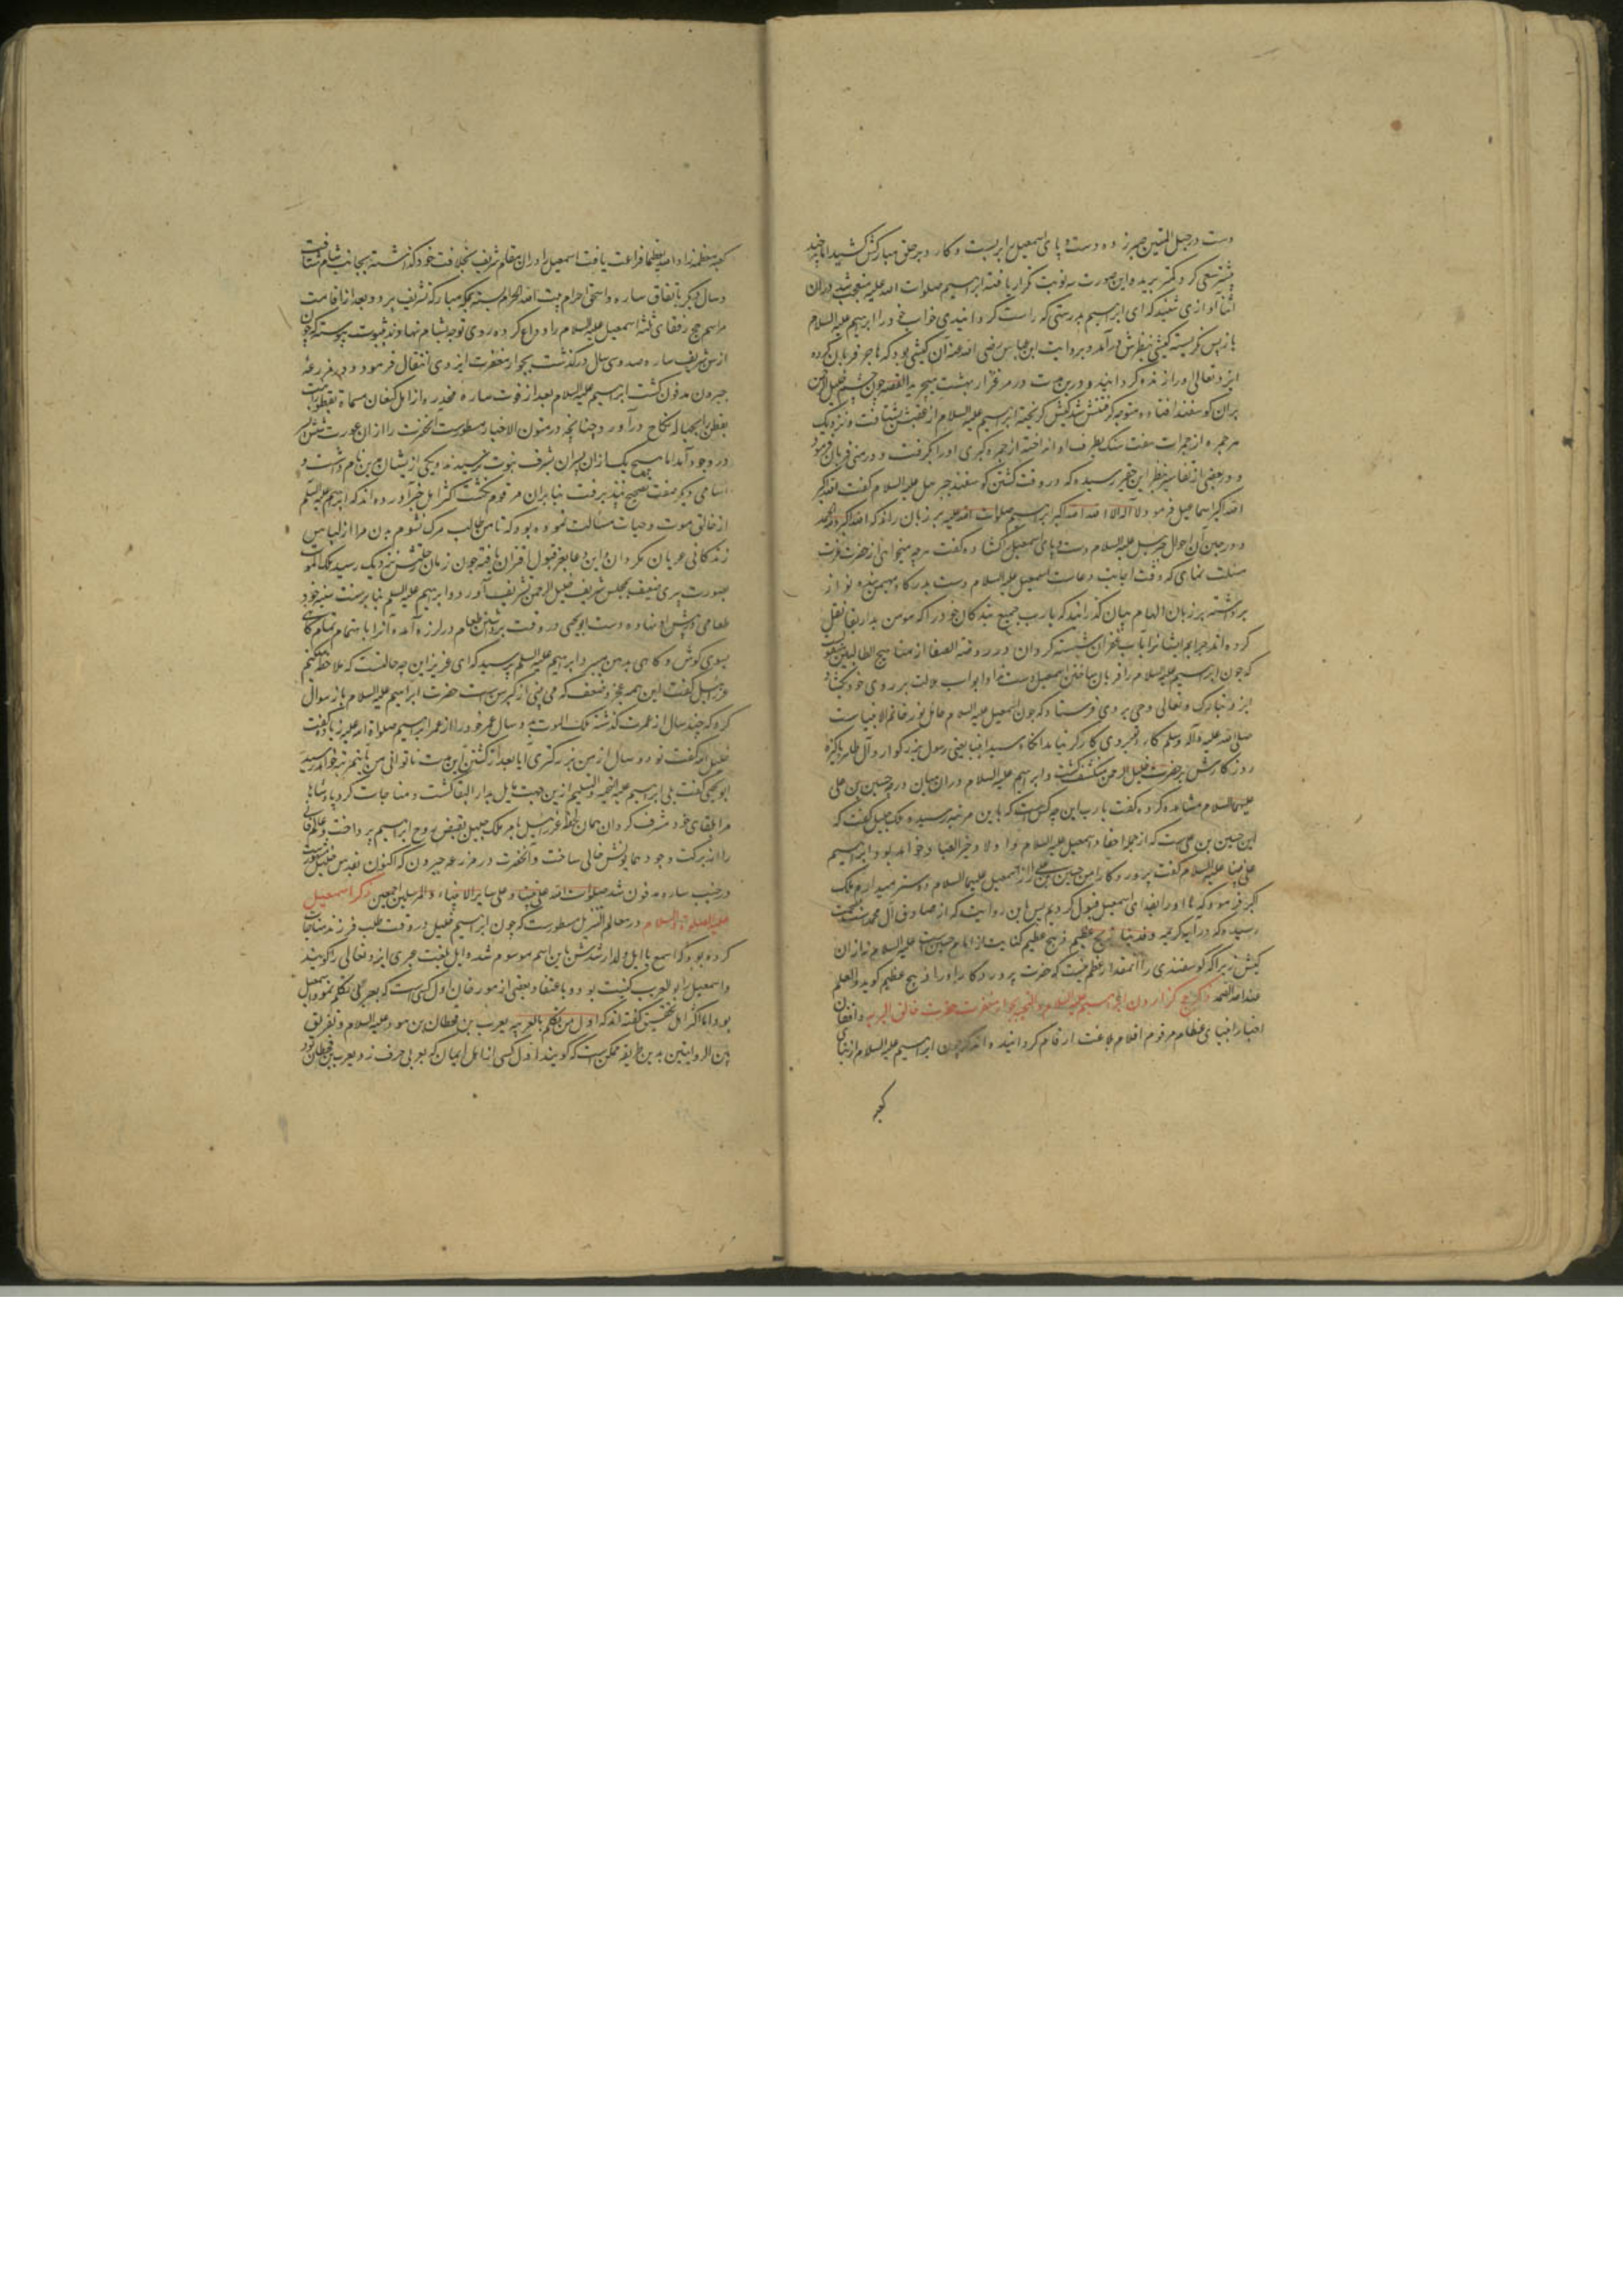 دست در حبل المتین صبر زده دست و پای اسمعیل را بربست و کارد بر حلق مبارکش کشید اما هرچند
بیشتر سعی کرد کمتر برید و این صورت سه نوبت تکرار یافته ابراهیم صلوات الله علیه متعجب شد در آن
اثنا آوازی شنید که ای ابراهیم بدرستی که راست گردانیدی خواب خود را ابراهیم علیه السلام
باز پس نگریسته کبشی بنظرش درآمد و بروایت ابن عباس رضی الله عنه آن کبشی بود که هابیل قربان کرده
ایزد تعالی او را زنده گردانید و درین مدت در مرغزار بهشت میچرید القصه چون چشم خلیل الرحمن
بران گوسفند افتاده متوجه گرفتنش شد کبش گریخته ابراهیم علیه السلام از عقبش بشتافت و نزدیک
هر جمره از جمرات هفت سنک بطرف او انداخته از جمره کبری او را بگرفت و در منی قربان فرمود
و در بعضی از تفاسیر بنظر این حقیر رسیده که در وقت کشتن گوسفند جبرئیل علیه السلام گفت الله اکبر
الله اکبر اسماعیل فرمود لا اله الا الله الله اکبر ابراهیم صلوات الله علیه بر زبان راند که الله اکبر و لله الحمد
و در حین آن حوال جبرئیل علیه السلام دست و پای اسمعیل را گشاده گفت هرچه میخواهی از حضرت عزت
مسئلت نمای که وقت اجابت دعاست اسمعیل علیه السلام دست بدرگاه مهیمن بنده نواز
برداشته بر زبان الهام بیان گذرانید که یا رب جمیع بندگان خود را که مومن بدار بقا نقل
کرده اند جرایم ایشانرا بآب غفران شسته گردان و در روضة الصفا از مناهج الطالبین منقول
که چون ابراهیم علیه السلام را قربان ساختن اسمعیل دست نداد ابواب ملالت بر روی خود گشاد
ایزد تبارک و تعالی وحی بر وی فرستاد که چون اسمعیل علیه السلام حامل نور خاتم الانبیاست
صلی الله علیه و آله وسلم کارد تو بر وی کارگر نیامد آنکاه سید انبیا یعنی رسول بزرگوار و آل طاهر پاکیزه
روزگارش بر حضرت خلیل الرحمن منکشف گشت و ابراهیم علیه السلام در آن میان درجه حسین بن علی
علیهما السلام مشاهده کرده گفت یا رب این چه کس است که باین مرتبه رسیده ملک جلیل گفت که
این حسین بن علی است که از جمله احفاد اسمعیل علیه السلام و اولاد خیر العباد خواهد بود ابراهیم
علی نبینا علیه السلام گفت پروردگارا من حسین بن علی را از اسمعیل علیهما السلام دوستر میدارم ملک
اکبر فرمود که ما او را بفدای اسمعیل قبول کردیم پس باین روایت که از صادق آل محمد بصحت
رسیده که در آیه کریمه وفدیناه بذبح عظیم ذبح عظیم کنایت از امام حسین است علیه السلام نه از آن
کبش زیرا که گوسفندی را آنمقدار عظم نیست که حضرت پروردگار او را ذبح عظیم گوید والعلم
عند الله الصمد ذکر حج گزاردن ابراهیم علیه السلام و التحیه بجوار مغفرت حضرت خالق البریه واقفان
اخبار انبیای عظام مرقوم اقلام بلاغت ارقام گردانیده اند که چون ابراهیم علیه السلام از بنای
کعبه
کعبه معظمه زادها الله تعظیما فراغت یافت اسمعیل را در آن مقام شریف بخلافت خود گذاشته بجانب شام شتافت
و سال دیگر باتفاق ساره و اسحق احرام بیت الله الحرام بسته بمکه مبارکه تشریف برد و بعد از اقامت
مراسم حج رفقای ثلثه اسمعیل علیه السلام را وداع کرده روی توجه بشام نهادند بثبوت پیوسته که چون
از سن شریف ساره صد و سی سال درگذشت بجوار مغفرت ایزدی انتقال فرمود و در مزرعه
حبرون مدفون گشت ابراهیم علیه السلام بعد از فوت ساره مخدره از اهل کنعان مسماة بقطورا بنت
یقطن بحباله نکاح درآورد چنانچه در متون الاخبار مسطورست آنحضرت را از آن عورت شش پسر
در وجود آمد اما هیچ یک از آن پسران بشرف نبوت نرسیدند و یکی از ایشان مدین نام داشت و
اسامی دیگر صفت تصحیح نپذیرفت بنابران مرقوم نگشت اکثر اهل خبر آورده اند که ابراهیم علیه السلام
از خالق موت و حیات مسألت نموده بود که تا من طالب مرگ نشوم بدن مرا از لباس
زندگانی عریان مگردان و این دعا بعز قبول اقتران یافته چون زمان رحلتش نزدیک رسید ملک الموت
بصورت پیری ضعیف بمجلس شریف خلیل الرحمن تشریف آورد و ابراهیم علیه السلم بنا بر سنت سنیه خود
طعامی در پیش او نهاده دست ابو یحیی در وقت برداشتن طعام در لرزه آمده و آنرا باهتمام تمام گاهی
بسوی گوش و گاهی بدهن میبرد ابراهیم علیه السلم پرسید که ای عزیز این چه حالتست که ملاحظه میکنم
عزرائیل گفت این همه عجز و ضعف که می بینی از کبر سن است حضرت ابراهیم علیه السلام باز سوال
کرد که چند سال از عمرت گذشته ملک الموت دو سال عمر خود را از عمر ابراهیم صلواة الله علیه زیاده گفت
خلیل الله گفت تو دو سال از من بزرگتری آیا بعد از گذشتن این مدت ناتوانی من باین مرتبه خواهد رسید
ابو یحیی گفت بلی ابراهیم علیه التحیه والتسلیم ازین جهت مایل بدار البقا گشت و مناجات کرد پادشاها
مرا بلقای خود مشرف گردان همان لحظه عزرائیل بامر ملک جلیل بقبض روح ابراهیم پرداخت و عالم فانی
را از برکت وجود همایونش خالی ساخت و آنحضرت در مزرعه حبرون که اکنون بقدس خلیل مشهورست
در جنب ساره مدفون شد صلوات الله علی نبینا و علی سایر الانبیاء والمرسلین اجمعین ذکر اسمعیل
علیه الصلوة والسلام در معالم التنزیل مسطورست که چون ابراهیم خلیل در وقت طلب فرزند مناجات
کرده بود که اسمع یا ایل ولد ارشدش باین اسم موسوم شد و ایل بلغت عبری ایزد تعالی را گویند
و اسمعیل را ابو العرب کنیت بود و باعتقاد بعضی از مورخان اول کسی است که بعربی تکلم نمود اسمعیل
بود اما اکثر اهل تحقیق گفته اند که اول من تکلم بالعربیه یعرب بن قحطان بن هود علیه السلام و تفریق
بین الروایتین بدین طریق ممکن است که گویند اول کسی از اهل ایمان که بعربی حرف زد یعرب بن قحطان بود